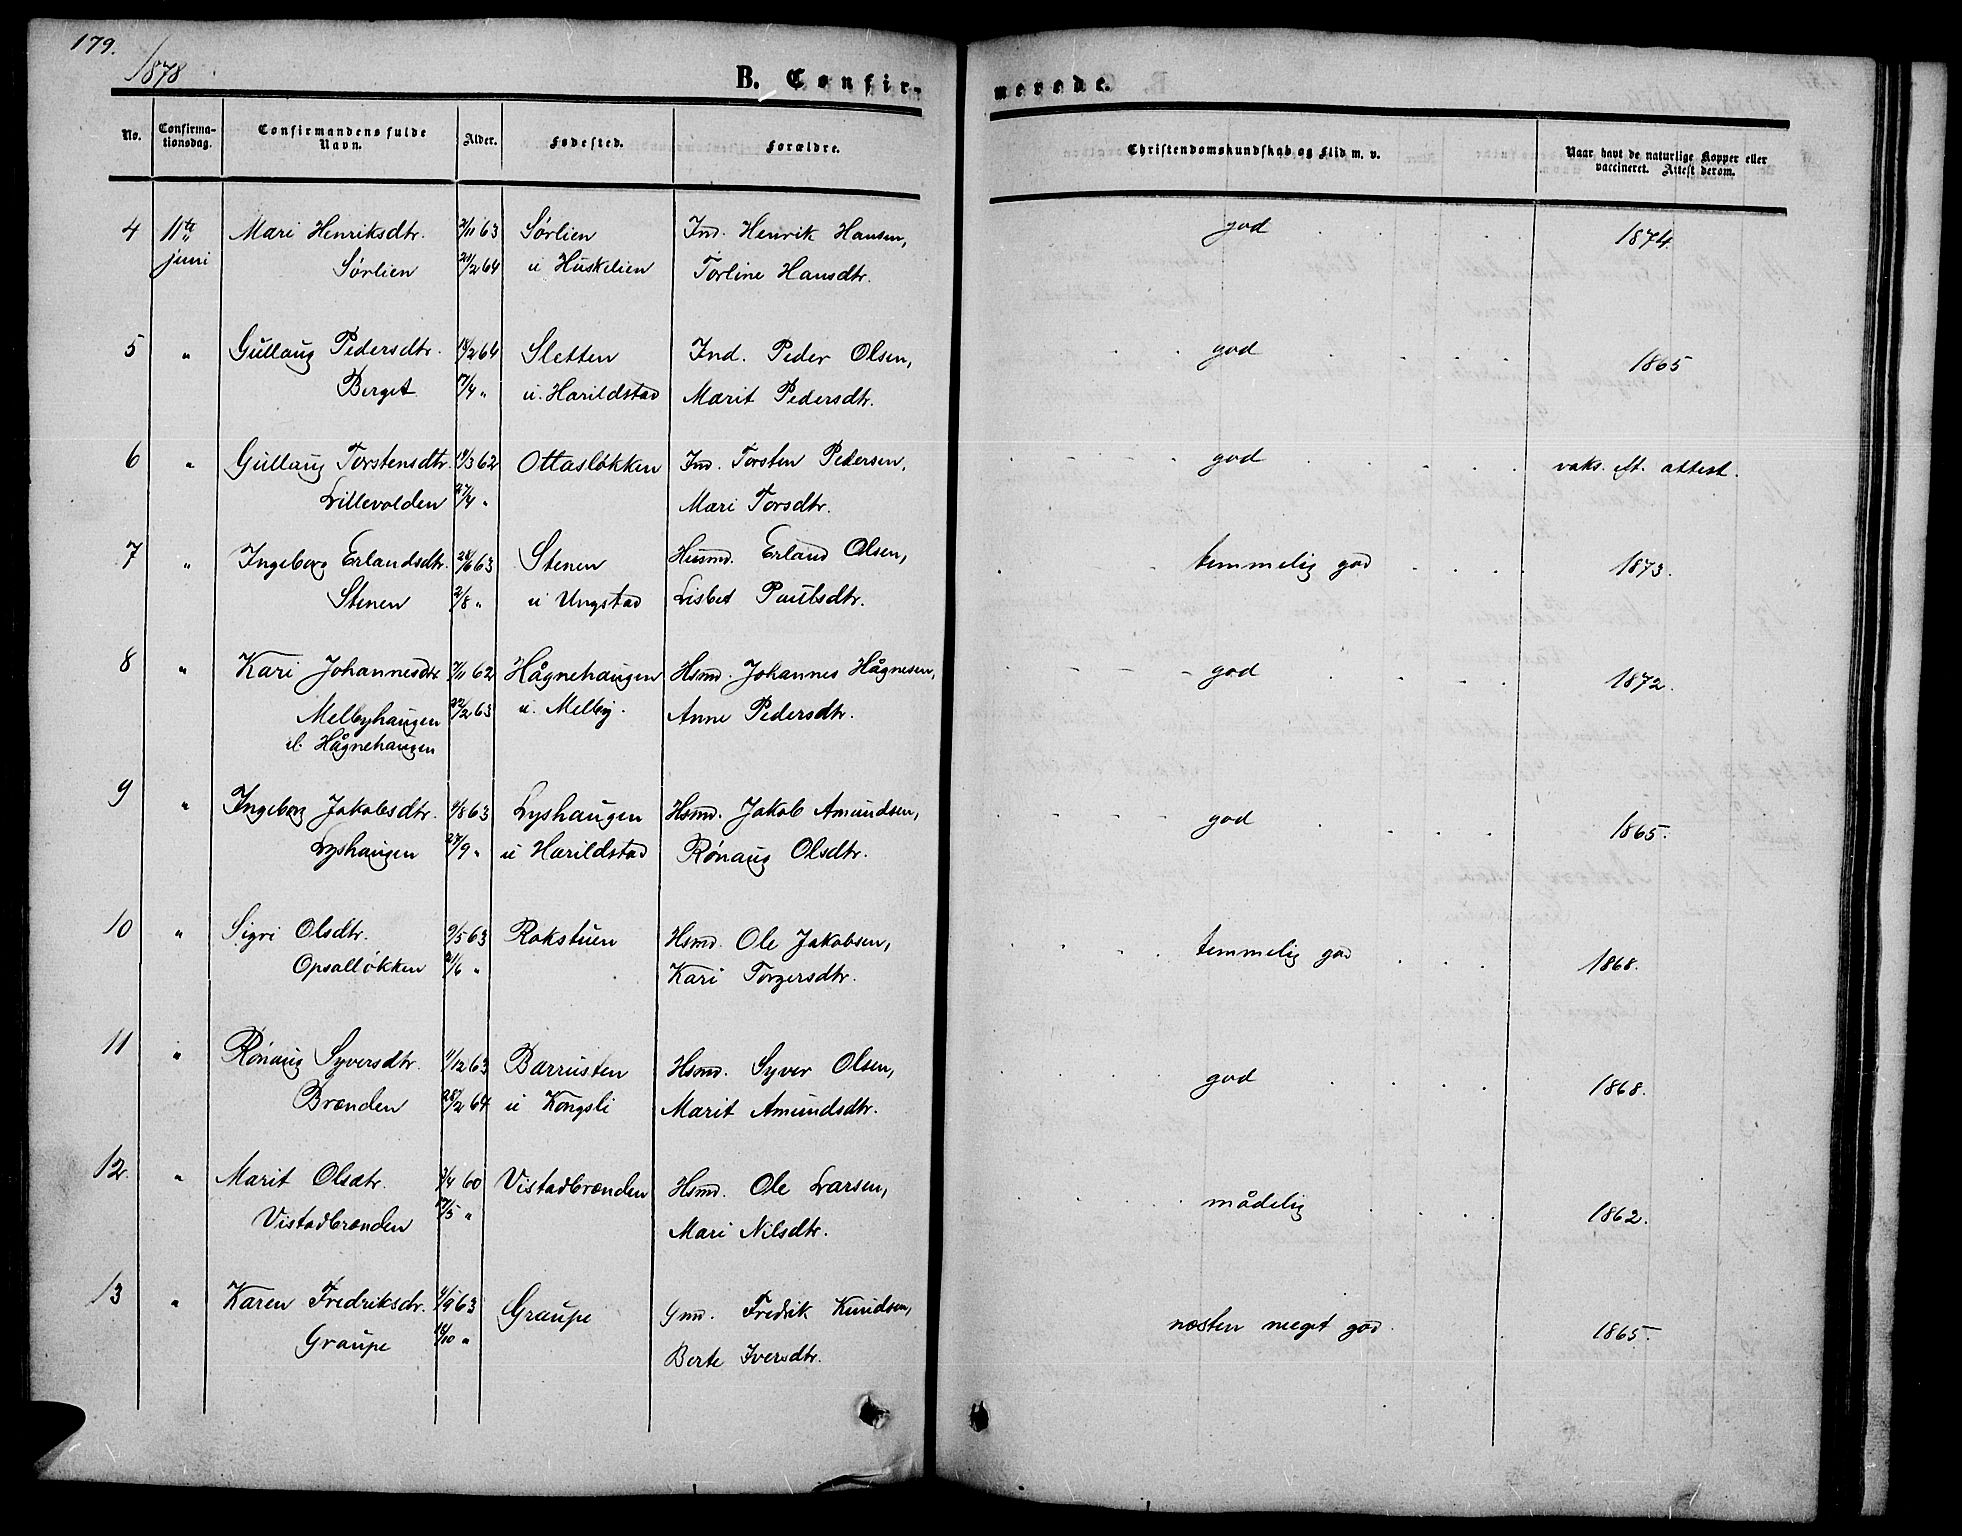 179.
1878
B. Confir-
merede.
No. Confirma-tionsdag. Confirmandens fulde Navn. Alder. Fødested. Forældre. Christendomskundskab og Flid m. v. Naar havt de naturlige Kopper eller vaccineret. Attest derom.
4 11te Mari Henriksdtr. 2/11 63 Sørlien Ind. Henrik Hansen, god 1874
juni Sørlien 21/2 64 u Huskelien Torline Hansdtr.
5 " Gullaug Pedersdtr. 18/2 64 Sletten Ind. Peder Olsen, god 1865
Berget 17/4 " u. Harildstad Marit Pedersdtr.
6 " Gullaug Torstensdtr. 19/3 62 Ottasløkken Ind. Torsten Pedersen, god vaks. eft. attest.
Lillevolden 27/4 " Mari Torsdtr.
7 " Ingeborg Erlandsdtr. 28/6 63 Stenen Husmd. Erland Olsen, temmelig god 1873.
Stenen 2/8 " u Ungstad Lisbet Paulsdtr.
8 " Kari Johannesdtr 7/11 62 Hågnehaugen Hsmd. Johannes Hågnesen, god 1872.
Melbyhaugen 22/2 63 u. Melby. Anne Pedersdtr.
el. Hågnehaugen
9 " Ingeborg Jakobsdtr. 9/8 63 Lyshaugen Hsmd. Jakob Amundsen, god 1865.
Lyshaugen 27/9 " u Harildstad Rønaug Olsdtr.
10 " Sigri Olsdtr. 9/5 63 Rokstuen Hsmd. Ole Jakobsen, temmelig god 1868.
Opsalløkken 21/6 " Kari Torgersdtr.
11 " Rønaug Syversdtr. 11/12 63 Barrusten Hsmd. Syver Olsen, god 1868.
Brænden 28/2 64 u Kongsli Marit Amundsdtr.
12. " Marit Olsdtr. 3/4 60 Vistadbrænden Hsmd. Ole Larsen, mådelig 1862.
Vistadbrænden 17/5 " Mari Nilsdtr.
13 " Karen Fredriksdr. 11/9 63 Graupe Gmd. Fredrik Knudsen, næsten meget god 1865.
Graupe 18/10 " Berte Iversdtr.